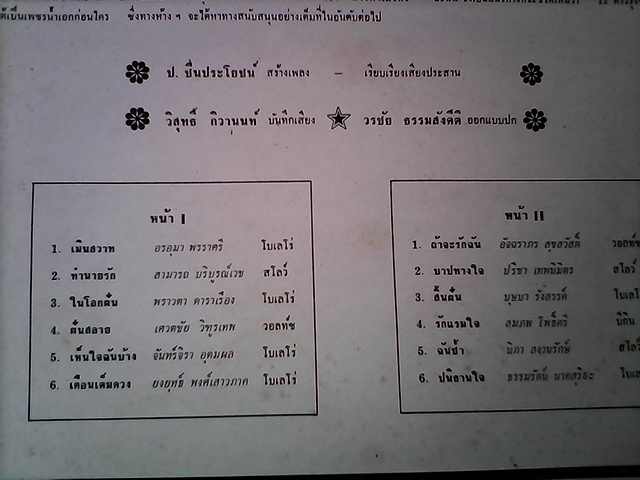 ซึ่งทางห้าง ฯ จะได้หาทางสนับสนุนอย่างเต็มที่ในอันดับต่อไป
ป. ชื่นประโยชน์ สร้างเพลง – เรียบเรียงเสียงประสาน
วิสุทธิ์ กิวานนท์ บันทึกเสียง วรชัย ธรรมสังคีติ ออกแบบปก
หน้า I
1. เมินสวาท อรอุมา พรราศรี โบเลโร่
2. ทำนายรัก สามารถ บริบูรณ์เวช สโลว์
3. ในโลกฝัน พราวตา ดาราเรือง โบเลโร่
4. ฝันสลาย เศวตชัย วิฑูรเทพ วอลท์ซ
5. เห็นใจฉันบ้าง จันทร์จิรา อุดมผล โบเลโร่
6. เดือนเต็มดวง ยงยุทธ์ พงศ์เสาวภาค โบเลโร่
หน้า II
1. ถ้าจะรักฉัน อัจฉราภร สุขสวัสดิ์ วอลท์ซ
2. บาปทางใจ ปรีชา เทพนิมิตร สโลว์
3. สิ้นฝัน บุษบา รังสรรค์ โบเล
4. รักแรมใจ สมภพ โพธิ์ศรี บีกิน
5. ฉันช้ำ นิภา สงวนรักษ์ สโล
6. ปนิธานใจ ธรรมรัตน์ นาคสุริยะ โบเล